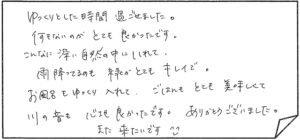 ゆっくりとした時間 過ごせました。
何もないのが とても 良かったです。
こんなに 深い 自然の中に いれて、
雨降ってるのも 緑がとても キレイで。
お風呂もゆっくり入れて、ごはんもとても 美味しくて
川の音も 心地良かったです。 ありがとうございました。
また 来たいです